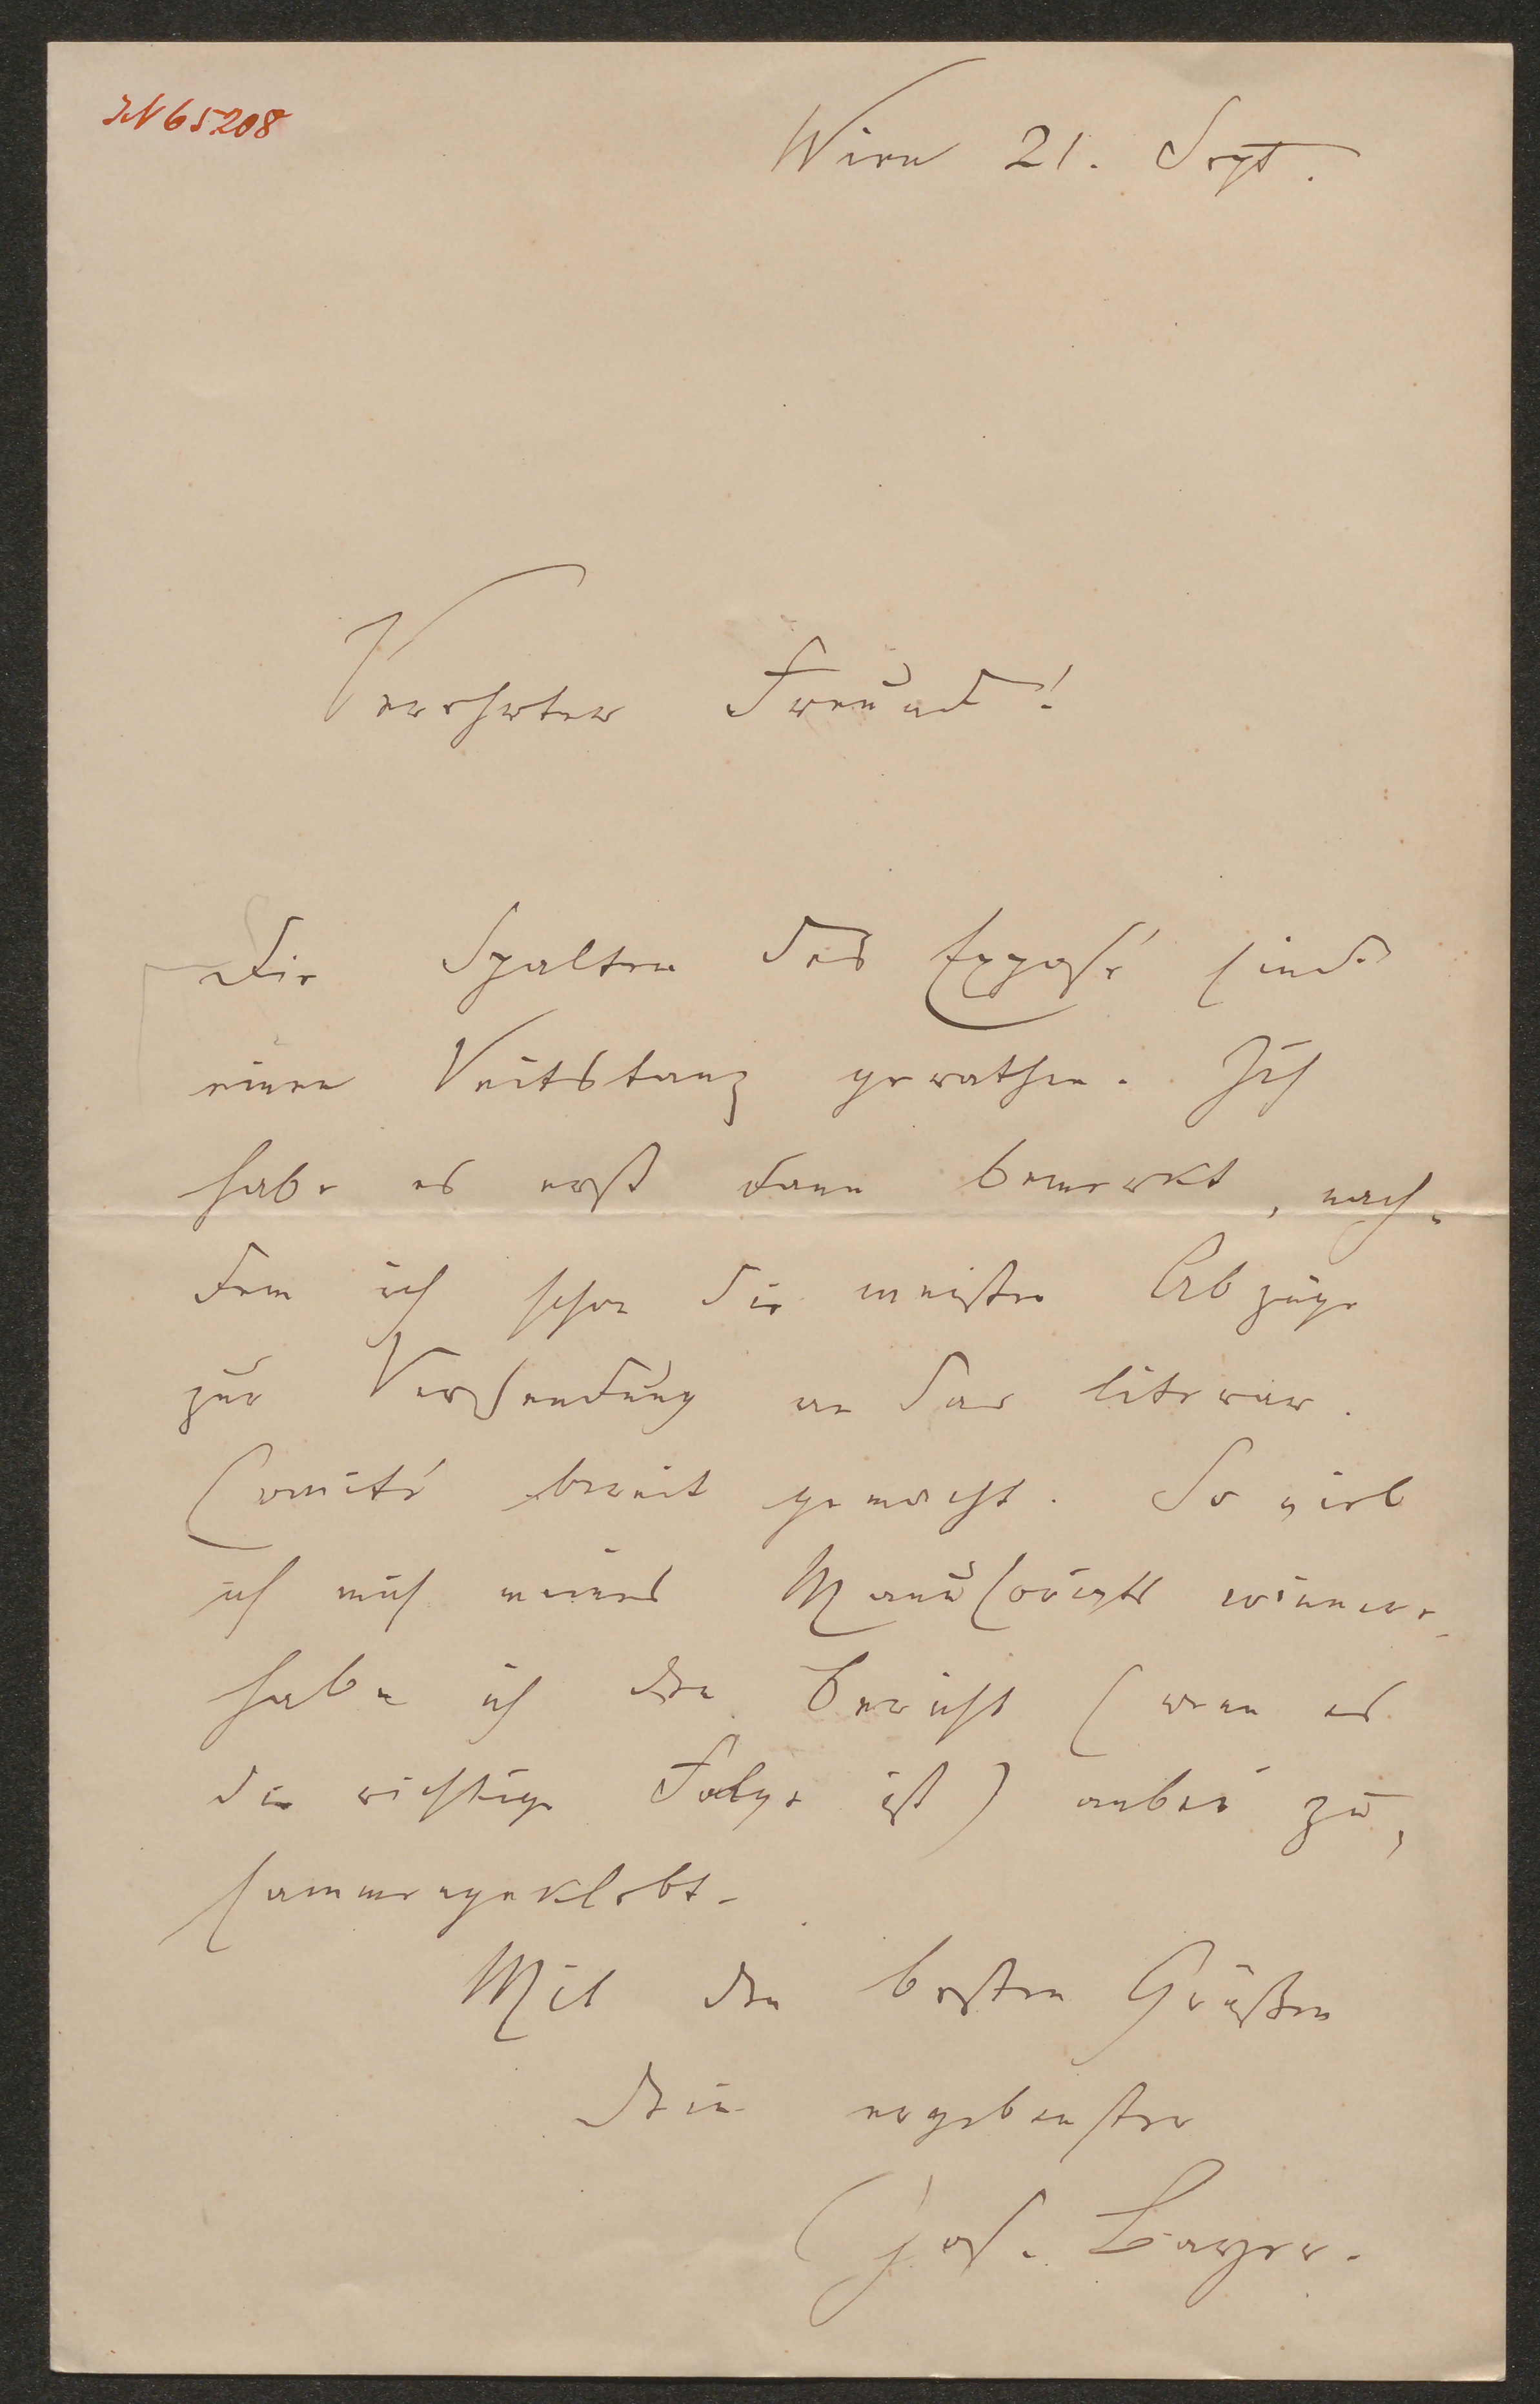 IN 65208
Wien 21. Sept.
Verehrter Freund!
Die Spalten des Exposé sind
einen Veitstanz gerathen. Ich
habe es erst dann bemerkt, nach-
dem ich schon die meisten Abzüge
zur Versendung an das literar.
Comité bereit gemacht. So viel
ich mich meines Manuscripts erinnere,
habe ich den Bericht (wenn es
die richtige Folge ist) anbei zu-
sammengeklebt.
Mit den besten Grüßen
Dein ergebenster
Jos. Bayer.